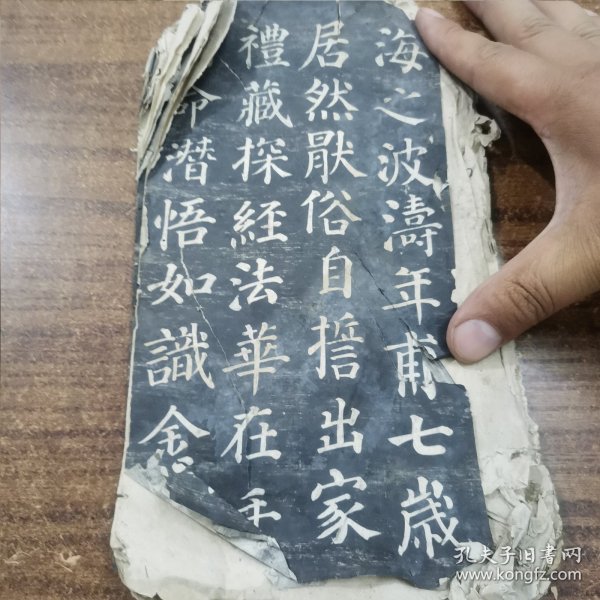 海之波濤年甫七歲
居然猒俗自誓出家
禮藏探經法華在手
命潛悟如識金
孔夫子旧書网
www.kongfz.com